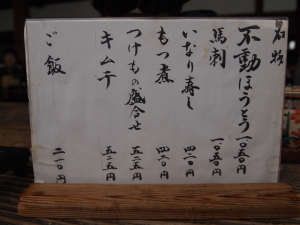 名物
不動ほうとう 一〇五〇円
馬刺 一〇五〇円
いなり寿し 四二〇円
もつ煮 四二〇円
つけもの盛合せ 五二五円
キムチ 五二五円
ご飯 二一〇円